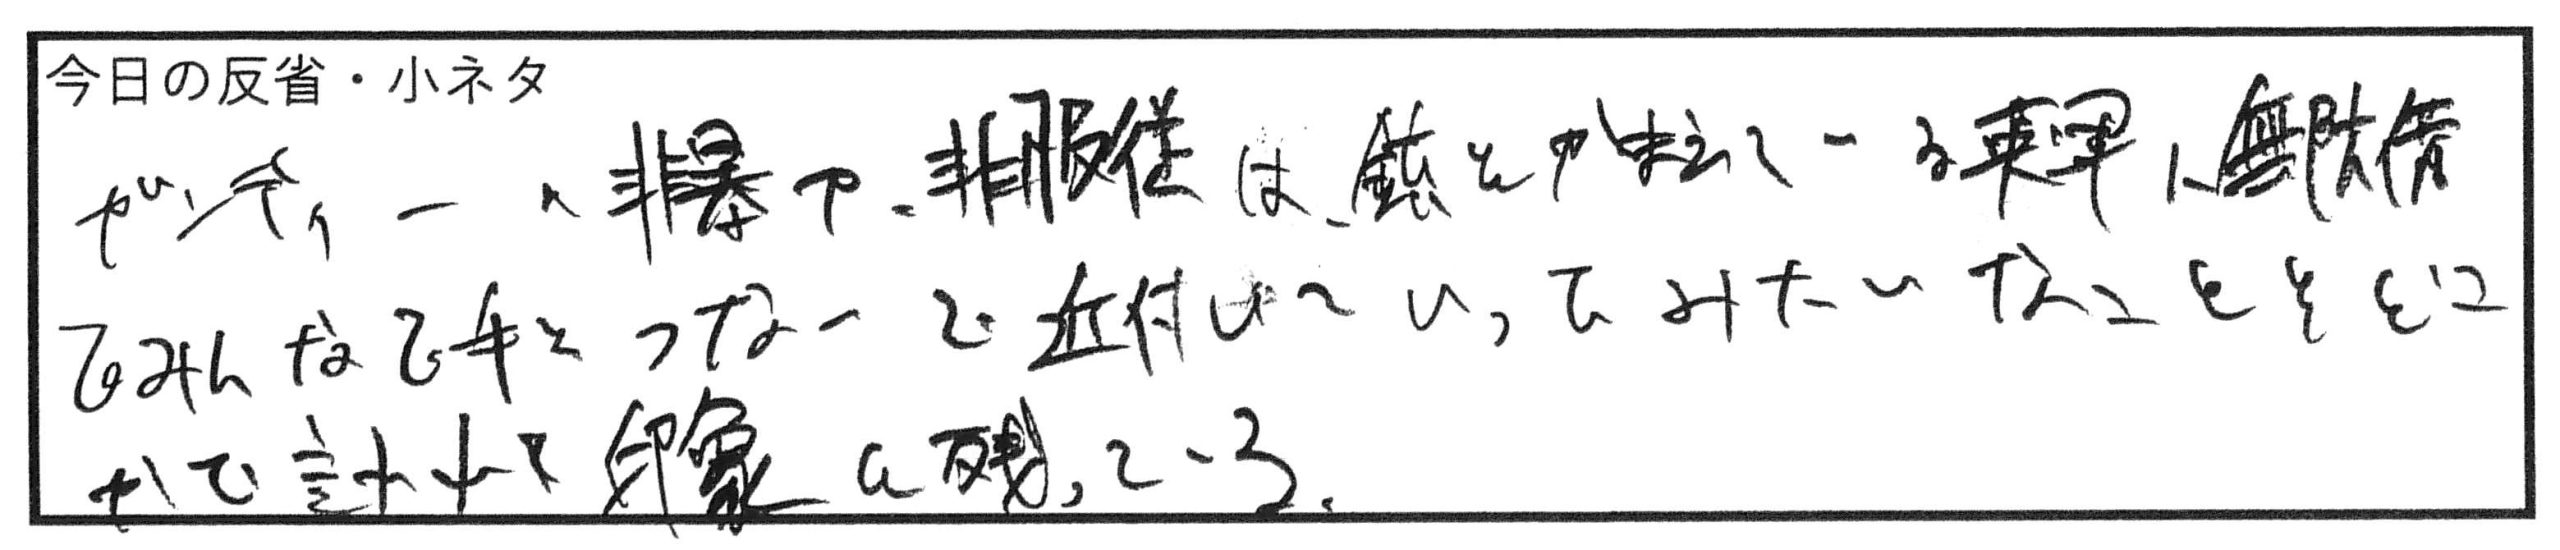 今日の反省・小ネタ
ガンディーの非暴力、非服従は、銃をかまえている英軍に無防備
でみんなで手をつないで近付いていってみたいなことをどこ
かで言われて印象に残っている。